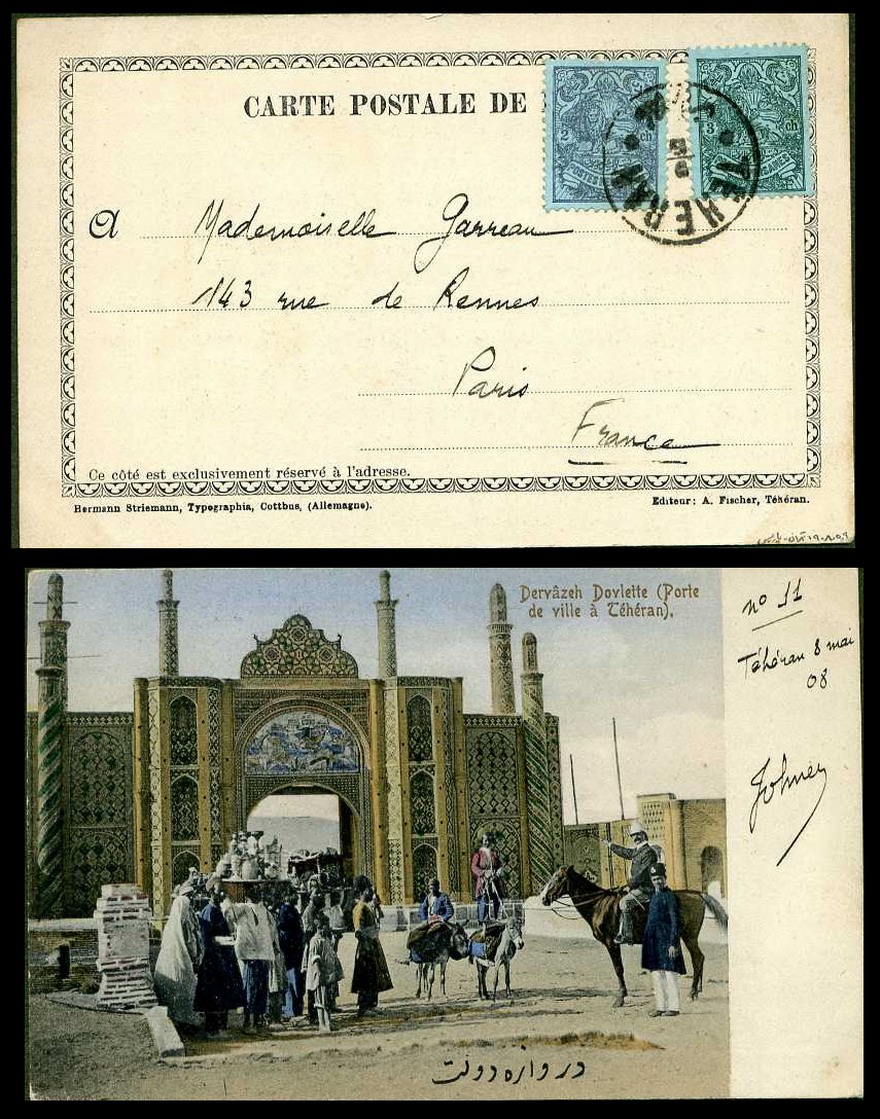 CARTE POSTALE DE
2 ch
3 ch
TEHERAN
A Mademoiselle Garreau
143 rue de Rennes
Paris
France
Ce côté est exclusivement réservé à l'adresse.
Hermann Striemann, Typographia, Cottbus, (Allemagne).
Editeur: A. Fischer, Téhéran.
Dervâzeh Dovlette (Porte
de ville à Téhéran).
no 11
Téhéran 8 mai
08
دروازه دولت